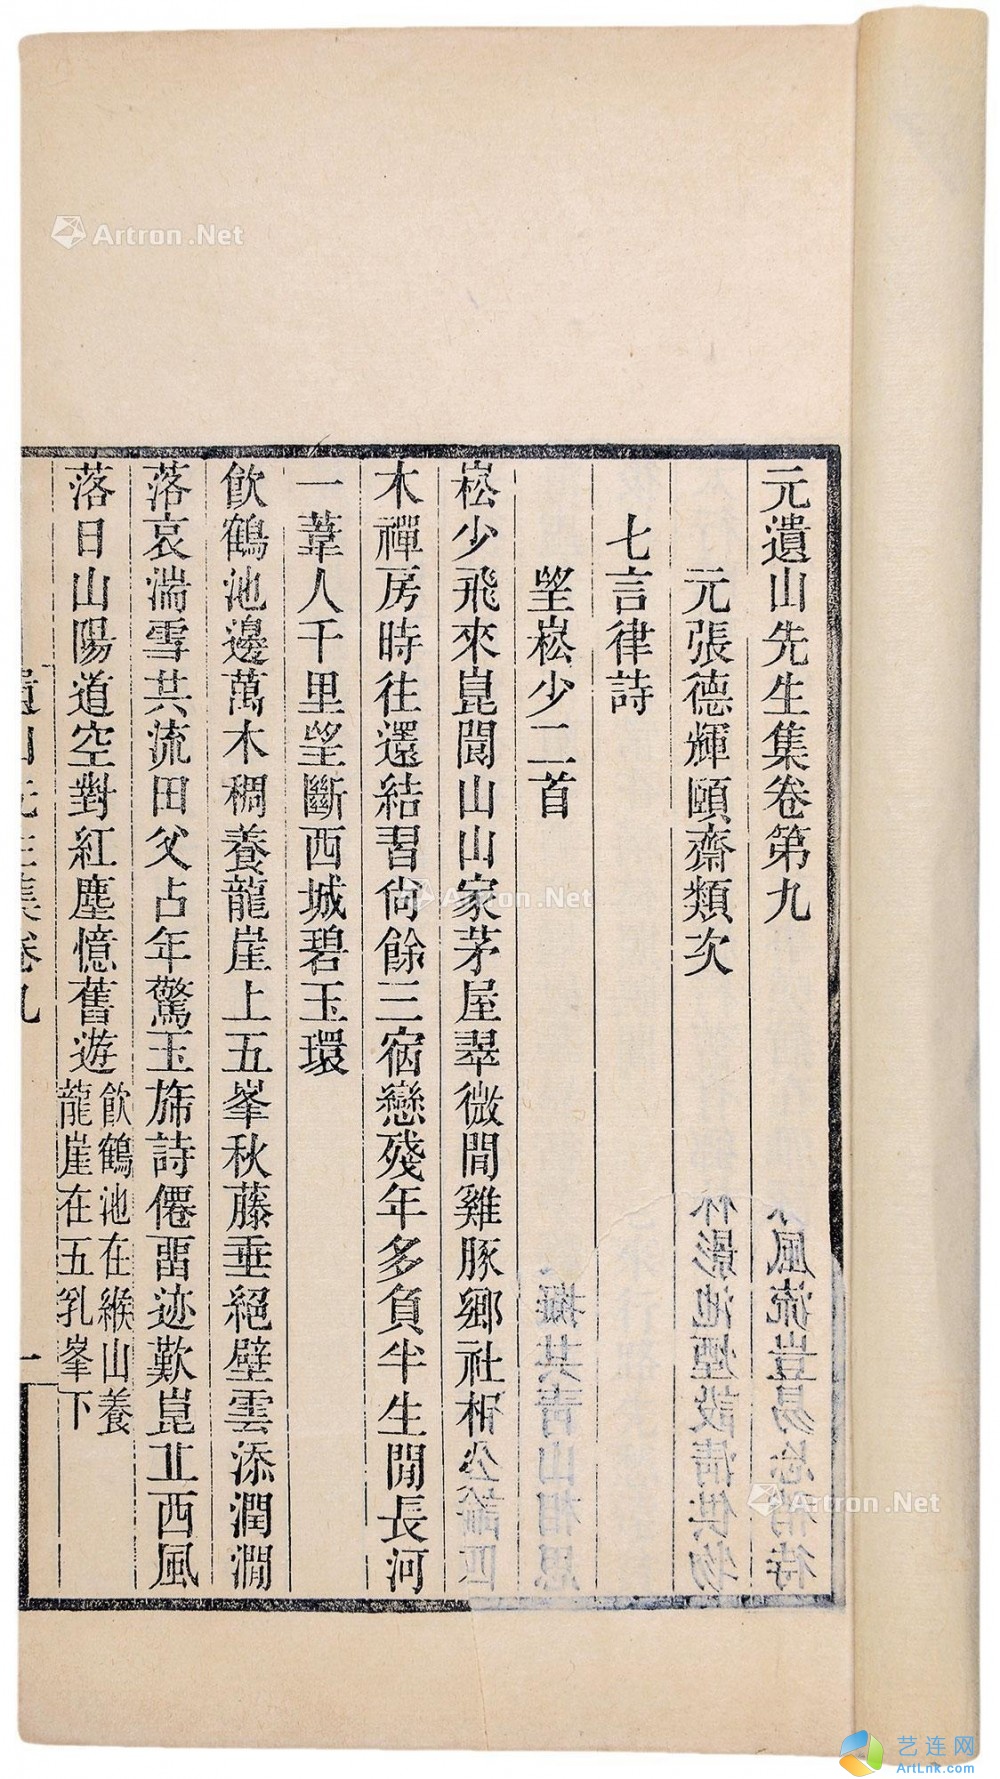 元遺山先生集卷第九
元張德輝頤齋類次
七言律詩
望崧少二首
崧少飛來崑閬山山家茅屋翠微間雞豚鄉社相
木禪房時往還結習尚餘三宿戀殘年多負半生閒長河
一葦人千里望斷西城碧玉環
飲鶴池邊萬木稠養龍崖上五峯秋藤垂絕壁雲添潤澗
落哀湍雪共流田父占年驚玉斾詩僊畱迹歎崑丘西風
落日山陽道空對紅塵憶舊遊
飲鶴池在緱山養
龍崖在五乳峯下
遺山先生集卷九
一
Artron.Net
Artron.Net
Artron.Net
艺连网
ArtLnk.com